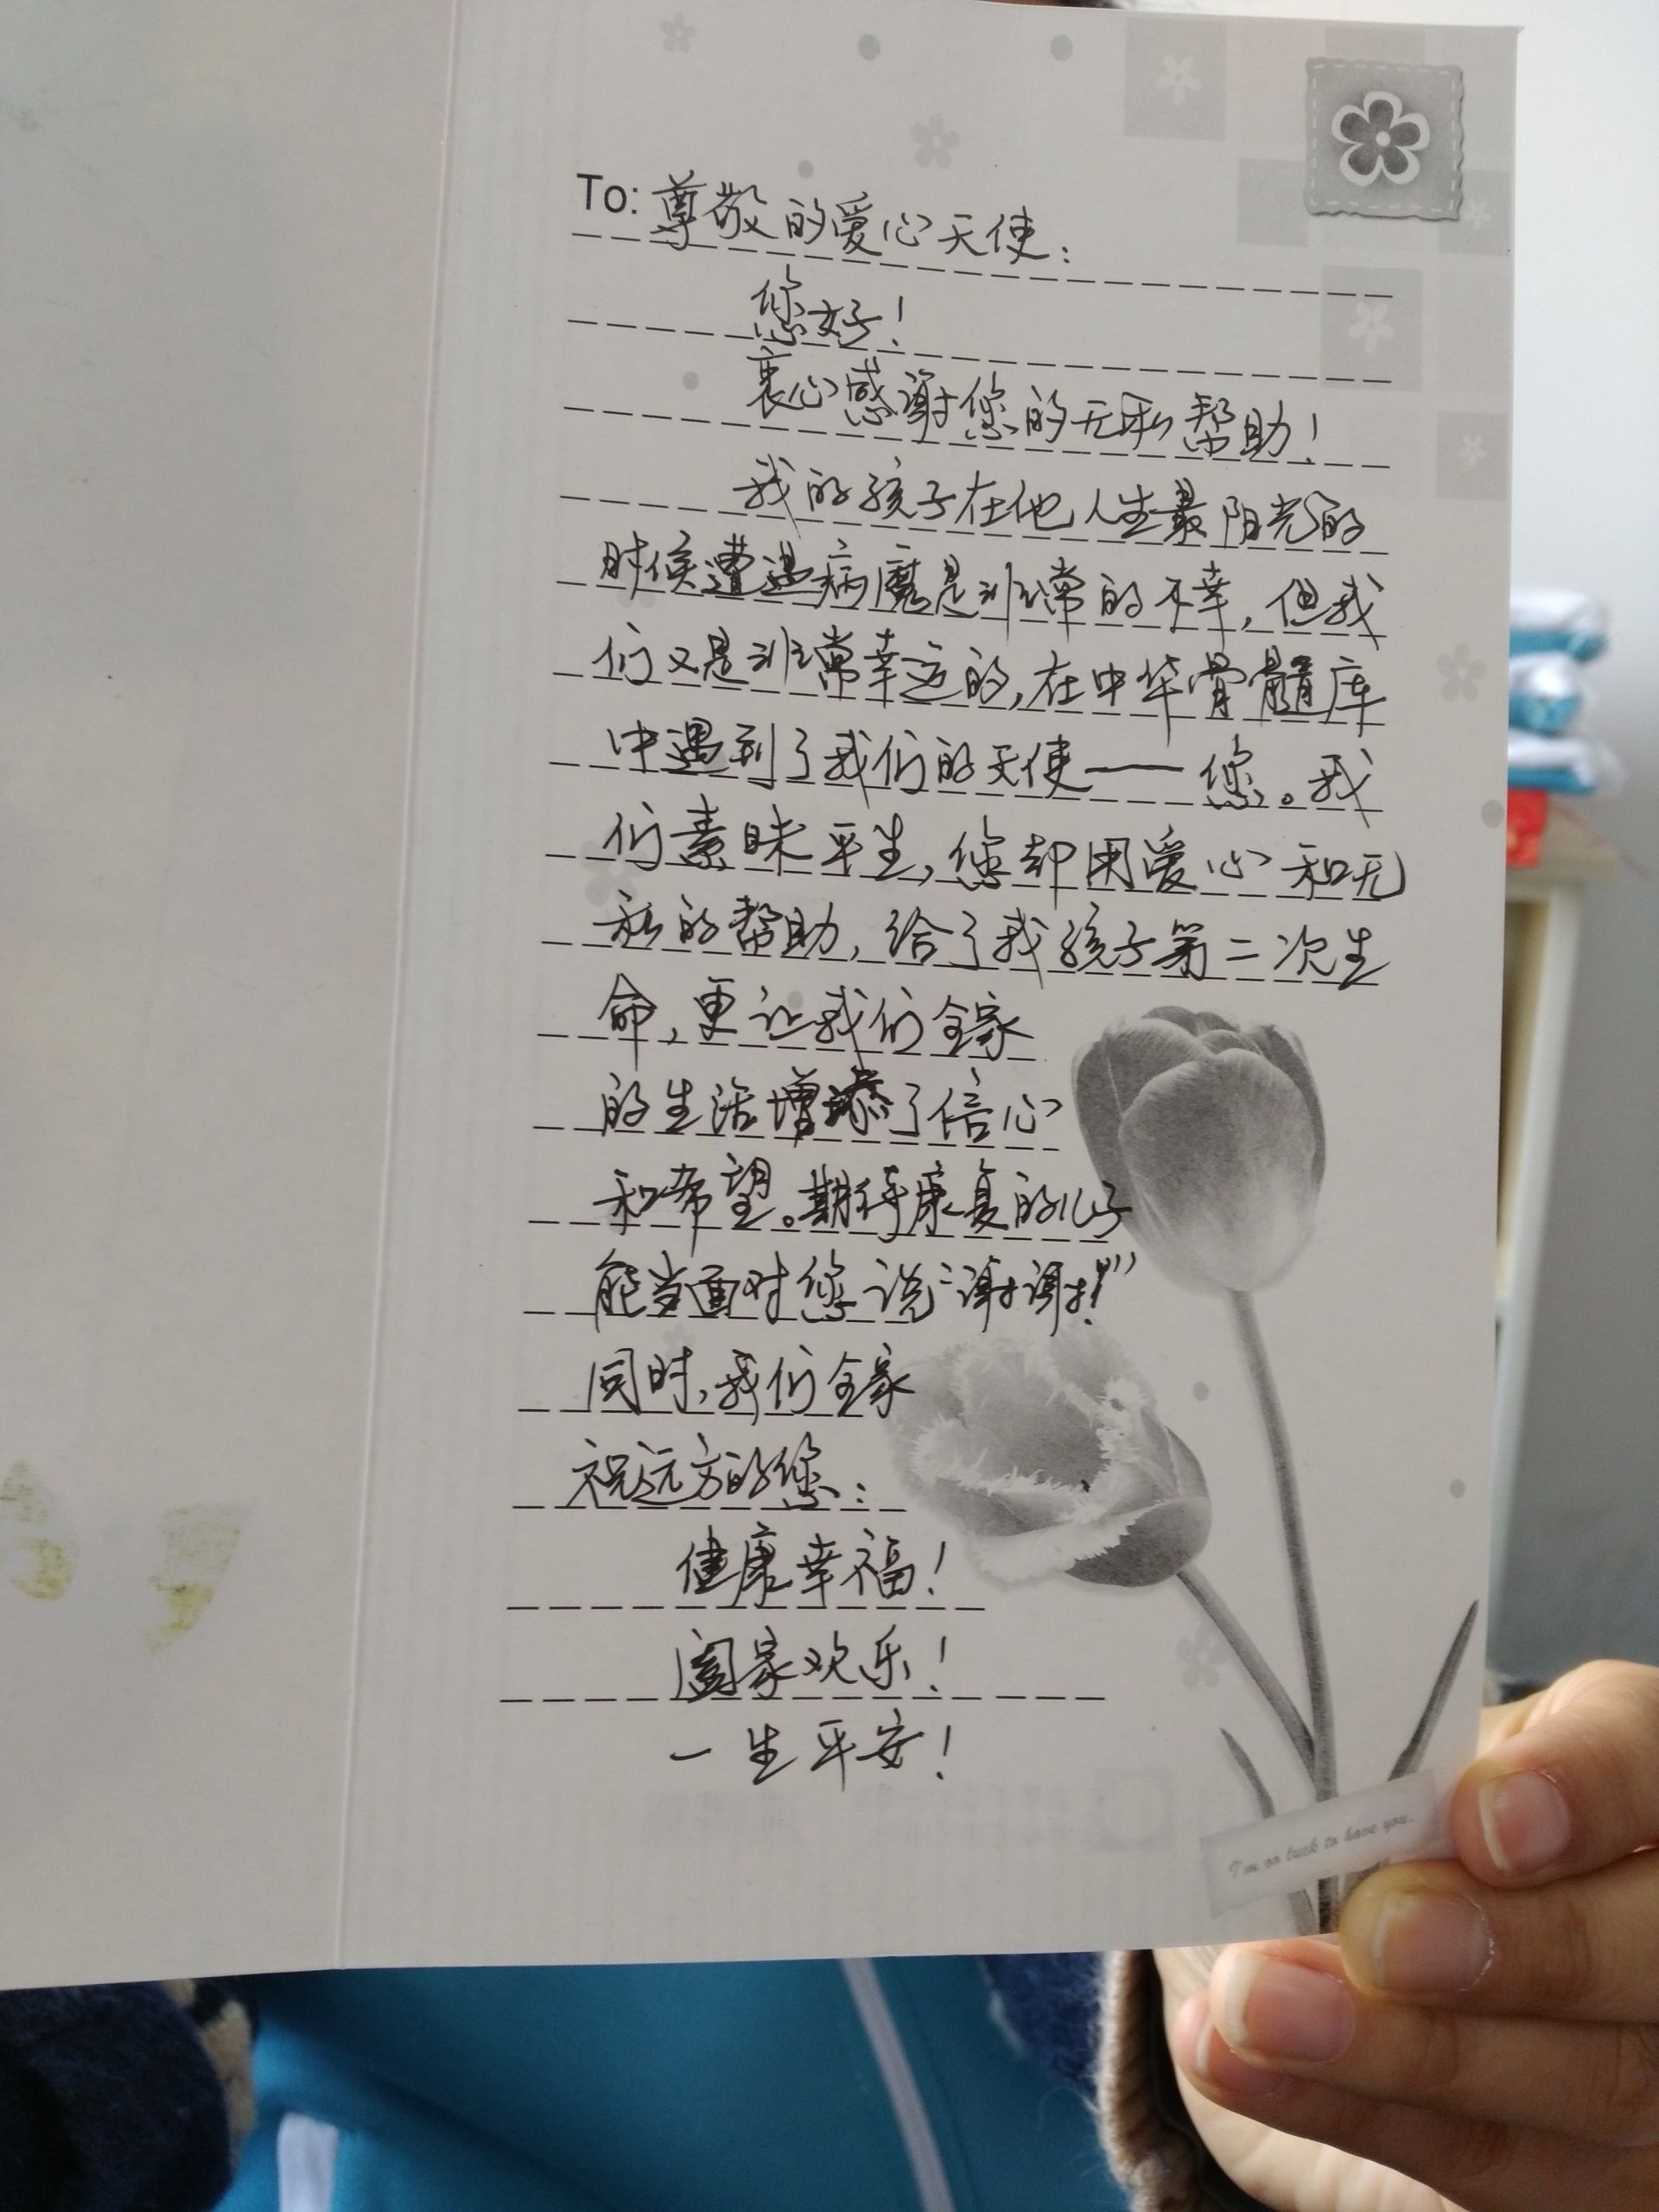 To: 尊敬的爱心天使：
您好！
衷心感谢您的无私帮助！
我的孩子在他人生最阳光的
时候遭遇病魔是非常的不幸，但我
们又是非常幸运的，在中华骨髓库
中遇到了我们的天使——您。我
们素昧平生，您却用爱心和无
私的帮助，给了我孩子第二次生
命，更让我们全家
的生活增添了信心
和希望。期待康复的儿子
能当面对您说“谢谢！”
同时，我们全家
祝远方的您：
健康幸福！
阖家欢乐！
一生平安！
I'm so luck to have you.